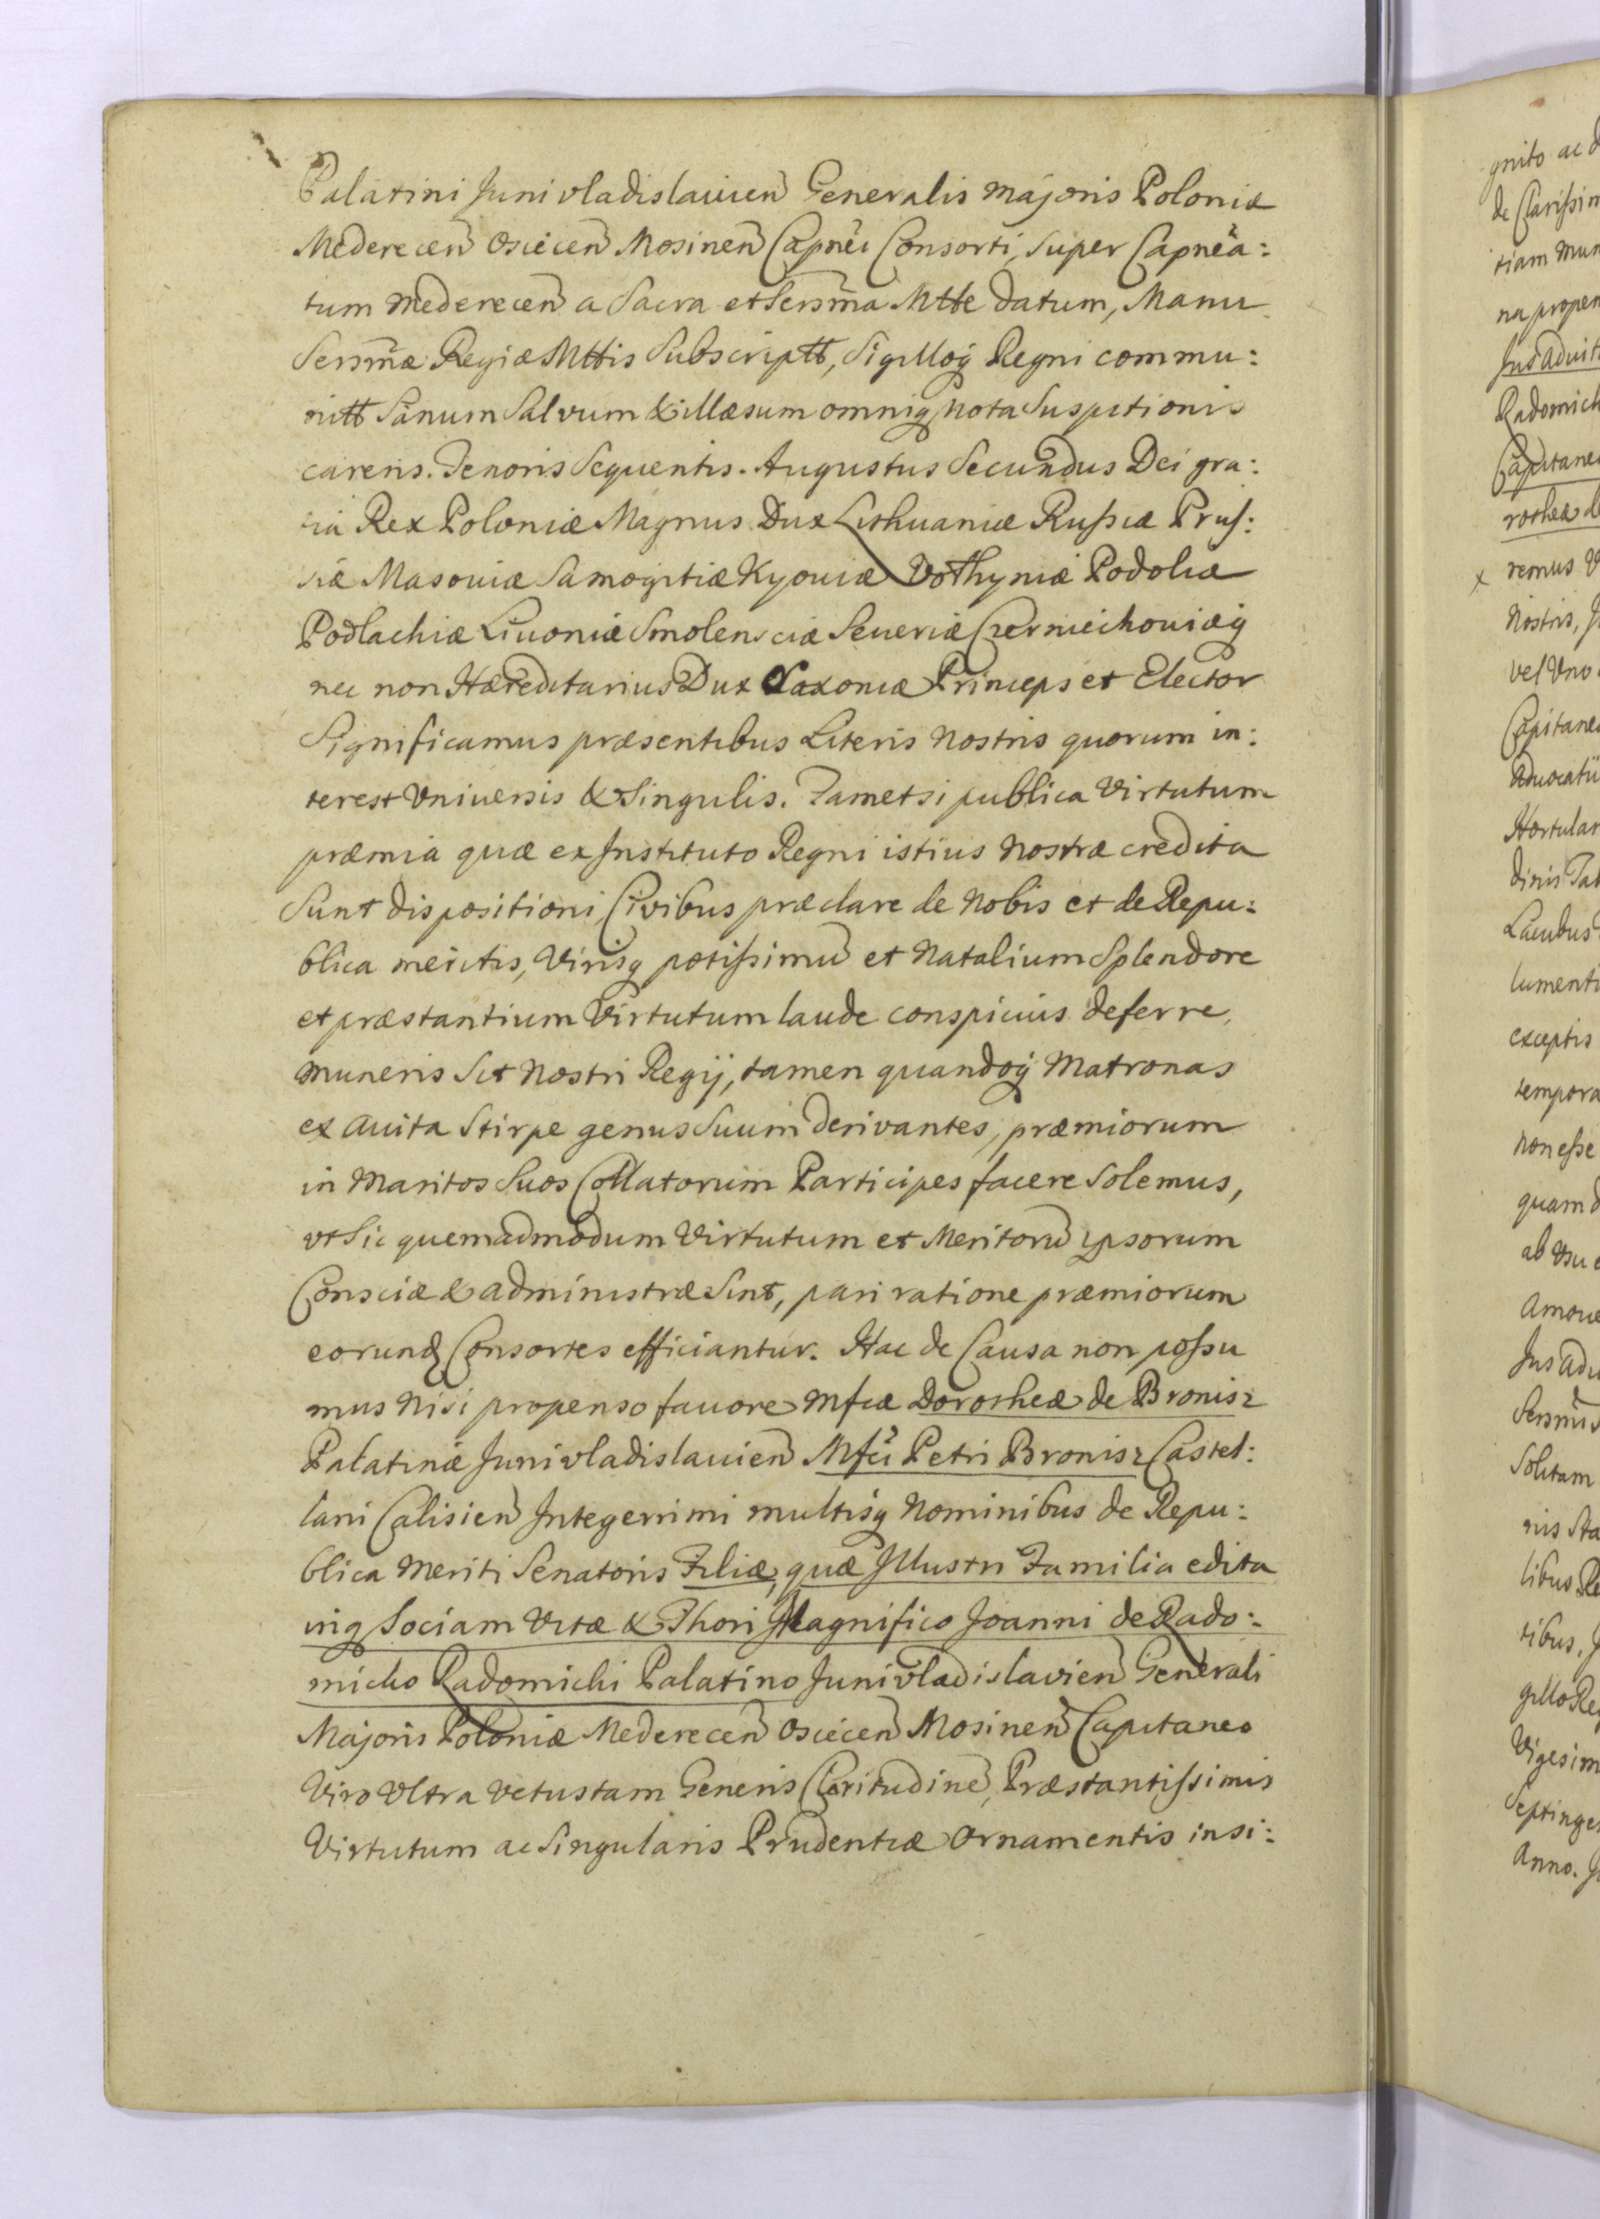 Palatini Junivladislauien Generalis Majoris Poloniæ
Mederecen Osiecen Mosinen Capnei Consorti, Super Capnea:
tum Mederecen a Sacra et Sersma Mtte datum, Manu
Sersmæ Regiæ Mttis Subscriptt, Sigilloq Regni commu:
nitt Sanum Salvum & illæsum omniq nota Suspitionis
carens. Tenoris Sequentis. Augustus Secundus Dei gra:
tia Rex Poloniæ Magnus Dux Lithuaniæ Russiæ Prus:
siæ Masouiæ Samogitiæ Kyouiæ Volhyniæ Podoliæ
Podlachiæ Liuoniæ Smolensciæ Seueriæ Czerniechouiæq
nec non Hæreditarius Dux Saxoniæ Princeps et Elector
Significamus præsentibus Literis Nostris quorum in:
terest Vniuersis & Singulis. Tametsi publica Virtutum
præmia quæ ex Instituto Regni istius Nostræ credita
Sunt dispositioni Civibus præclare de Nobis et de Repu:
blica meritis, Virisq potissimu et Natalium Splendore
et præstantium Virtutum laude conspicuis deferre,
muneris Sit Nostri Regij, tamen quandoq Matronas
ex Auita Stirpe genus Suum derivantes, præmiorum
in Maritos Suos Collatorum Participes facere Solemus,
vt Sic quemadmodum Virtutum et Meritoru ipsorum
Consciæ & administræ Sint, pari ratione præmiorum
eorund Consortes efficiantur. Hac de Causa non possu
mus Nisi propenso fauore Mfcæ Dorotheæ de Bronisz
Palatinæ Junivladislauien Mfci Petri Bronisz Castel:
lani Calisien Integerrimi multisq Nominibus de Repu:
blica Meriti Senatoris Filiæ, quæ Illustri Familia edita
inq Sociam Vitæ & Thori Magnifico Joanni de Rado:
micko Radomicki Palatino Junivladislavien Generali
Majoris Poloniæ Mederecen Osiecen Mosinen Capitaneo
Viro Vltra Vetustam Generis Claritudine, Præstantissimis
Virtutum ac Singularis Prudentiæ Ornamentis insi:
gnito ac
de Clarissim
tiam Mun
na propen
Jus aduit
Radomick
Capitane
rothea
x remus
Nostris,
vel Vno
Capitane
Aduocatii
Hortular
Lacubus
lumenti
exceptis
tempora
Non esse
quam
ab Vsu
Amoue
Jus adu
Solitam
nis Sta
libus Re
tibus,
gillo Re
Vigesim
Septinge
Anno.